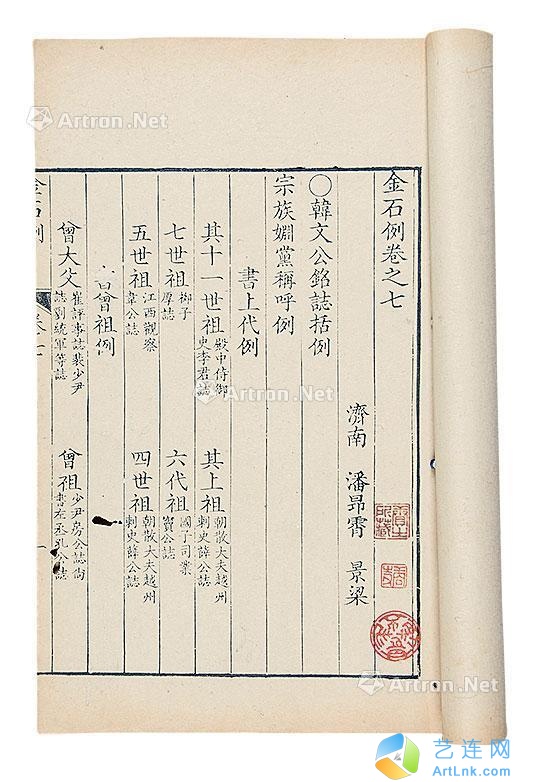 金石例卷之七
濟南 潘昂霄 景梁
○韓文公銘誌括例
宗族婣黨稱呼例
書上代例
其十一世祖 殿中侍御史李君誌 其上祖 朝散大夫越州刺史薛公誌
七世祖 栁子厚誌 六代祖 國子司業竇公誌
五世祖 江西觀察韋公誌 四世祖 朝散大夫越州刺史薛公誌
書曾祖例
曾大父 崔評事誌裴少尹誌劉統軍等誌 曾祖 少尹房公誌尚書左丞孔公誌
金石例 卷七 一
Artron.Net
Artron.Net
Artron.Net
艺连网
ArtLnk.com